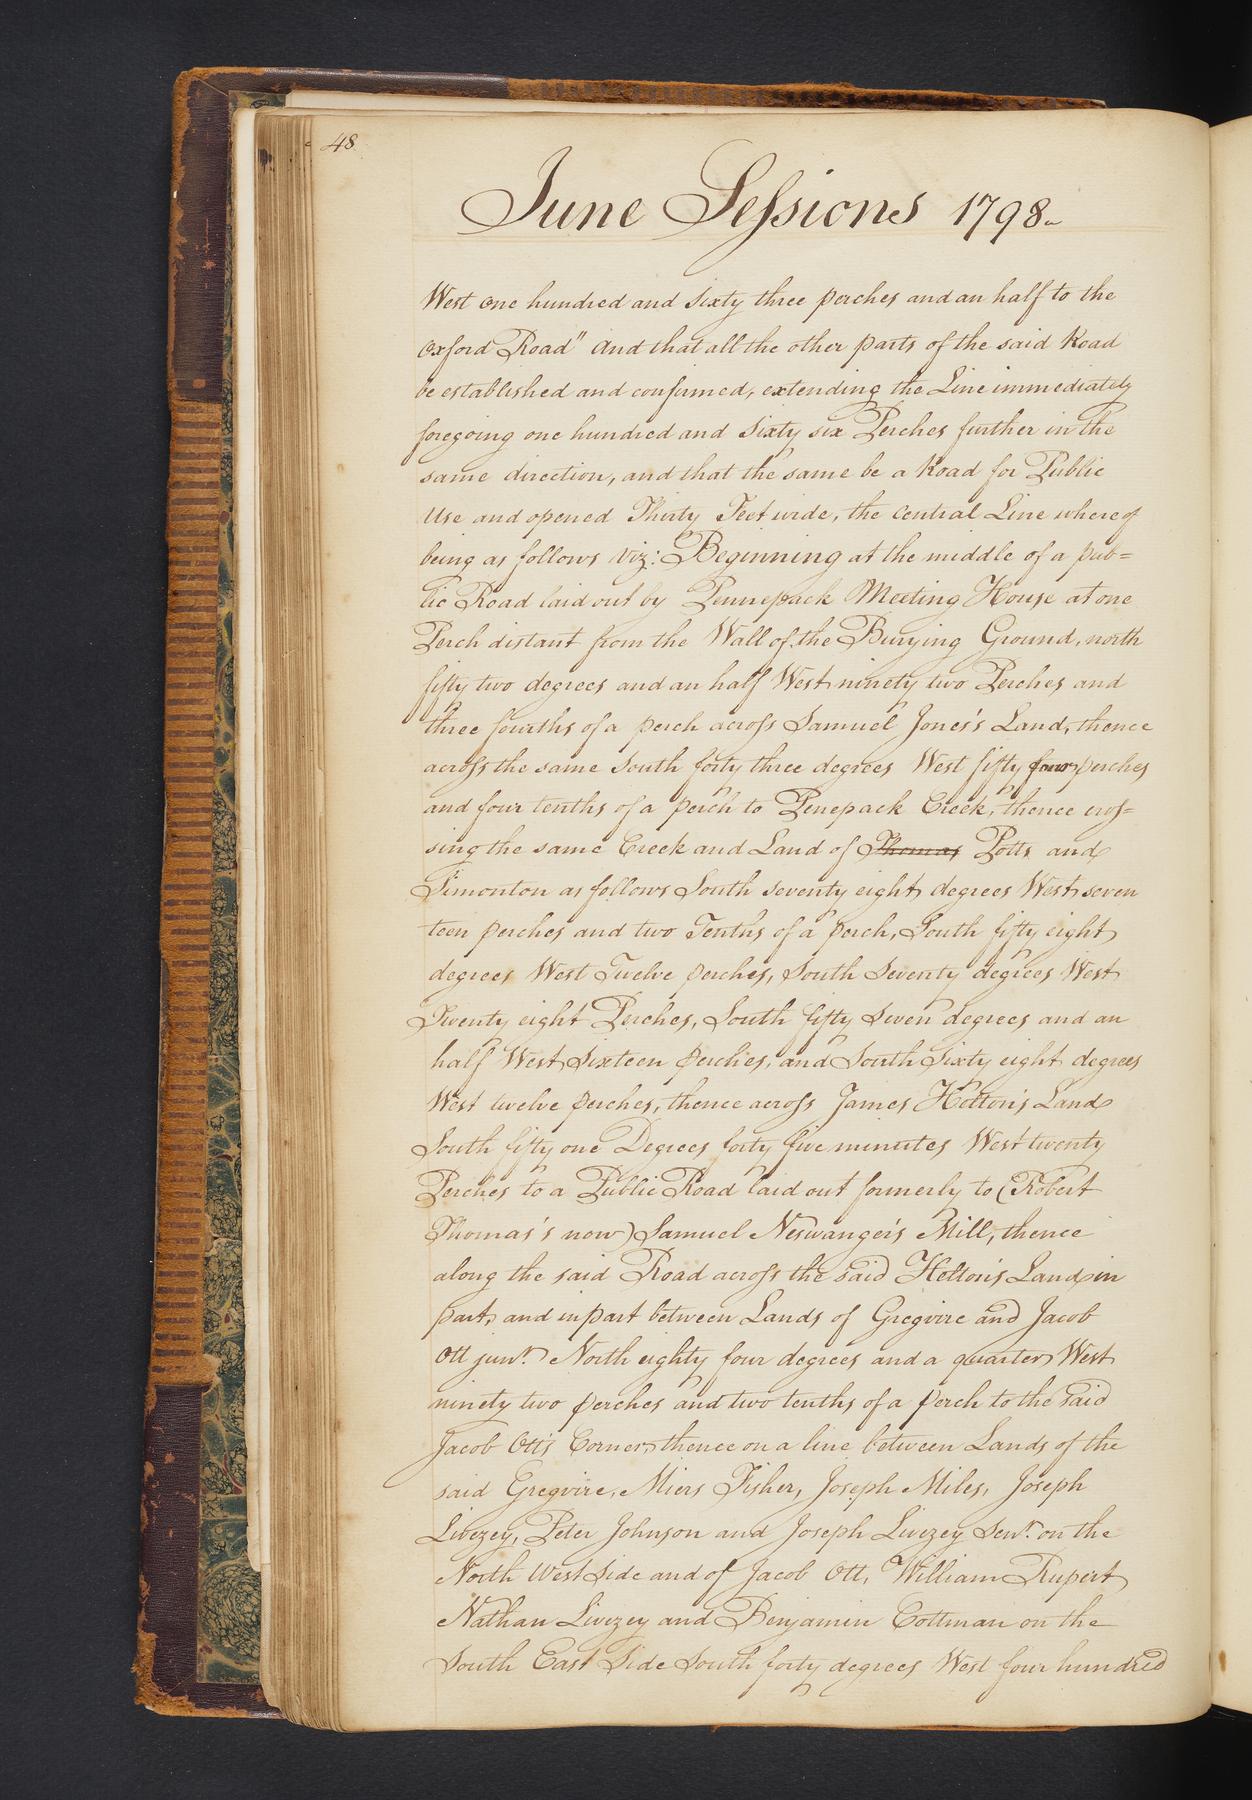 48
June Sessions 1798
West one hundred and sixty three perches and an half to the
Oxford Road" and that all the other parts of the said Road
be established and confirmed, extending the Line immediately
foregoing one hundred and Sixty six Perches further in the
same direction, and that the same be a Road for Public
Use and opened Thirty Feet wide, the central Line whereof
being as follows viz: Beginning at the middle of a pub=
lic Road laid out by Pennepack Meeting House at one
Perch distant from the Wall of the Burying Ground, north
fifty two degrees and an half West ninety two Perches and
three fourths of a perch across Samuel Jones's Land, thence
across the same South forty three degrees West fifty four perches
and four tenths of a perch to Penepack Creek, thence cros=
sing the same Creek and Land of Thomas Potts and
Timonton as follows South seventy eight degrees West seven
teen perches and two Tenths of a perch, South fifty eight
degrees West Twelve perches, South Seventy degrees West
Twenty eight Perches, South fifty Seven degrees and an
half West Sixteen perches, and South Sixty eight degrees
West twelve perches, thence across James Holton's Land
South fifty one Degrees forty five minutes West twenty
Perches to a Public Road laid out formerly to (Robert
Thomas's now) Samuel Neswanger's Mill, thence
along the said Road across the said Holton's Land in
part, and in part between Lands of Gregoire and Jacob
Ott junr. North eighty four degrees and a quarter West
ninety two perches and two tenths of a perch to the said
Jacob Ott's Corner, thence on a line between Lands of the
said Gregoire, Miers Fisher, Joseph Miles, Joseph
Livezey, Peter Johnson and Joseph Livezey Senr. on the
North West Side and of Jacob Ott, William Rupert
Nathan Livezey and Benjamin Cottman on the
South East Side South forty degrees West four hundred